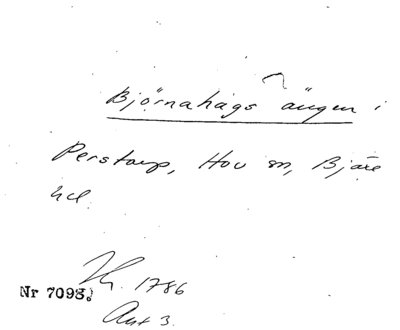 Björnahags ängen i
Perstorp, Hov sn, Bjäre
hd.
Nr 7098. 1786
Akt 3.